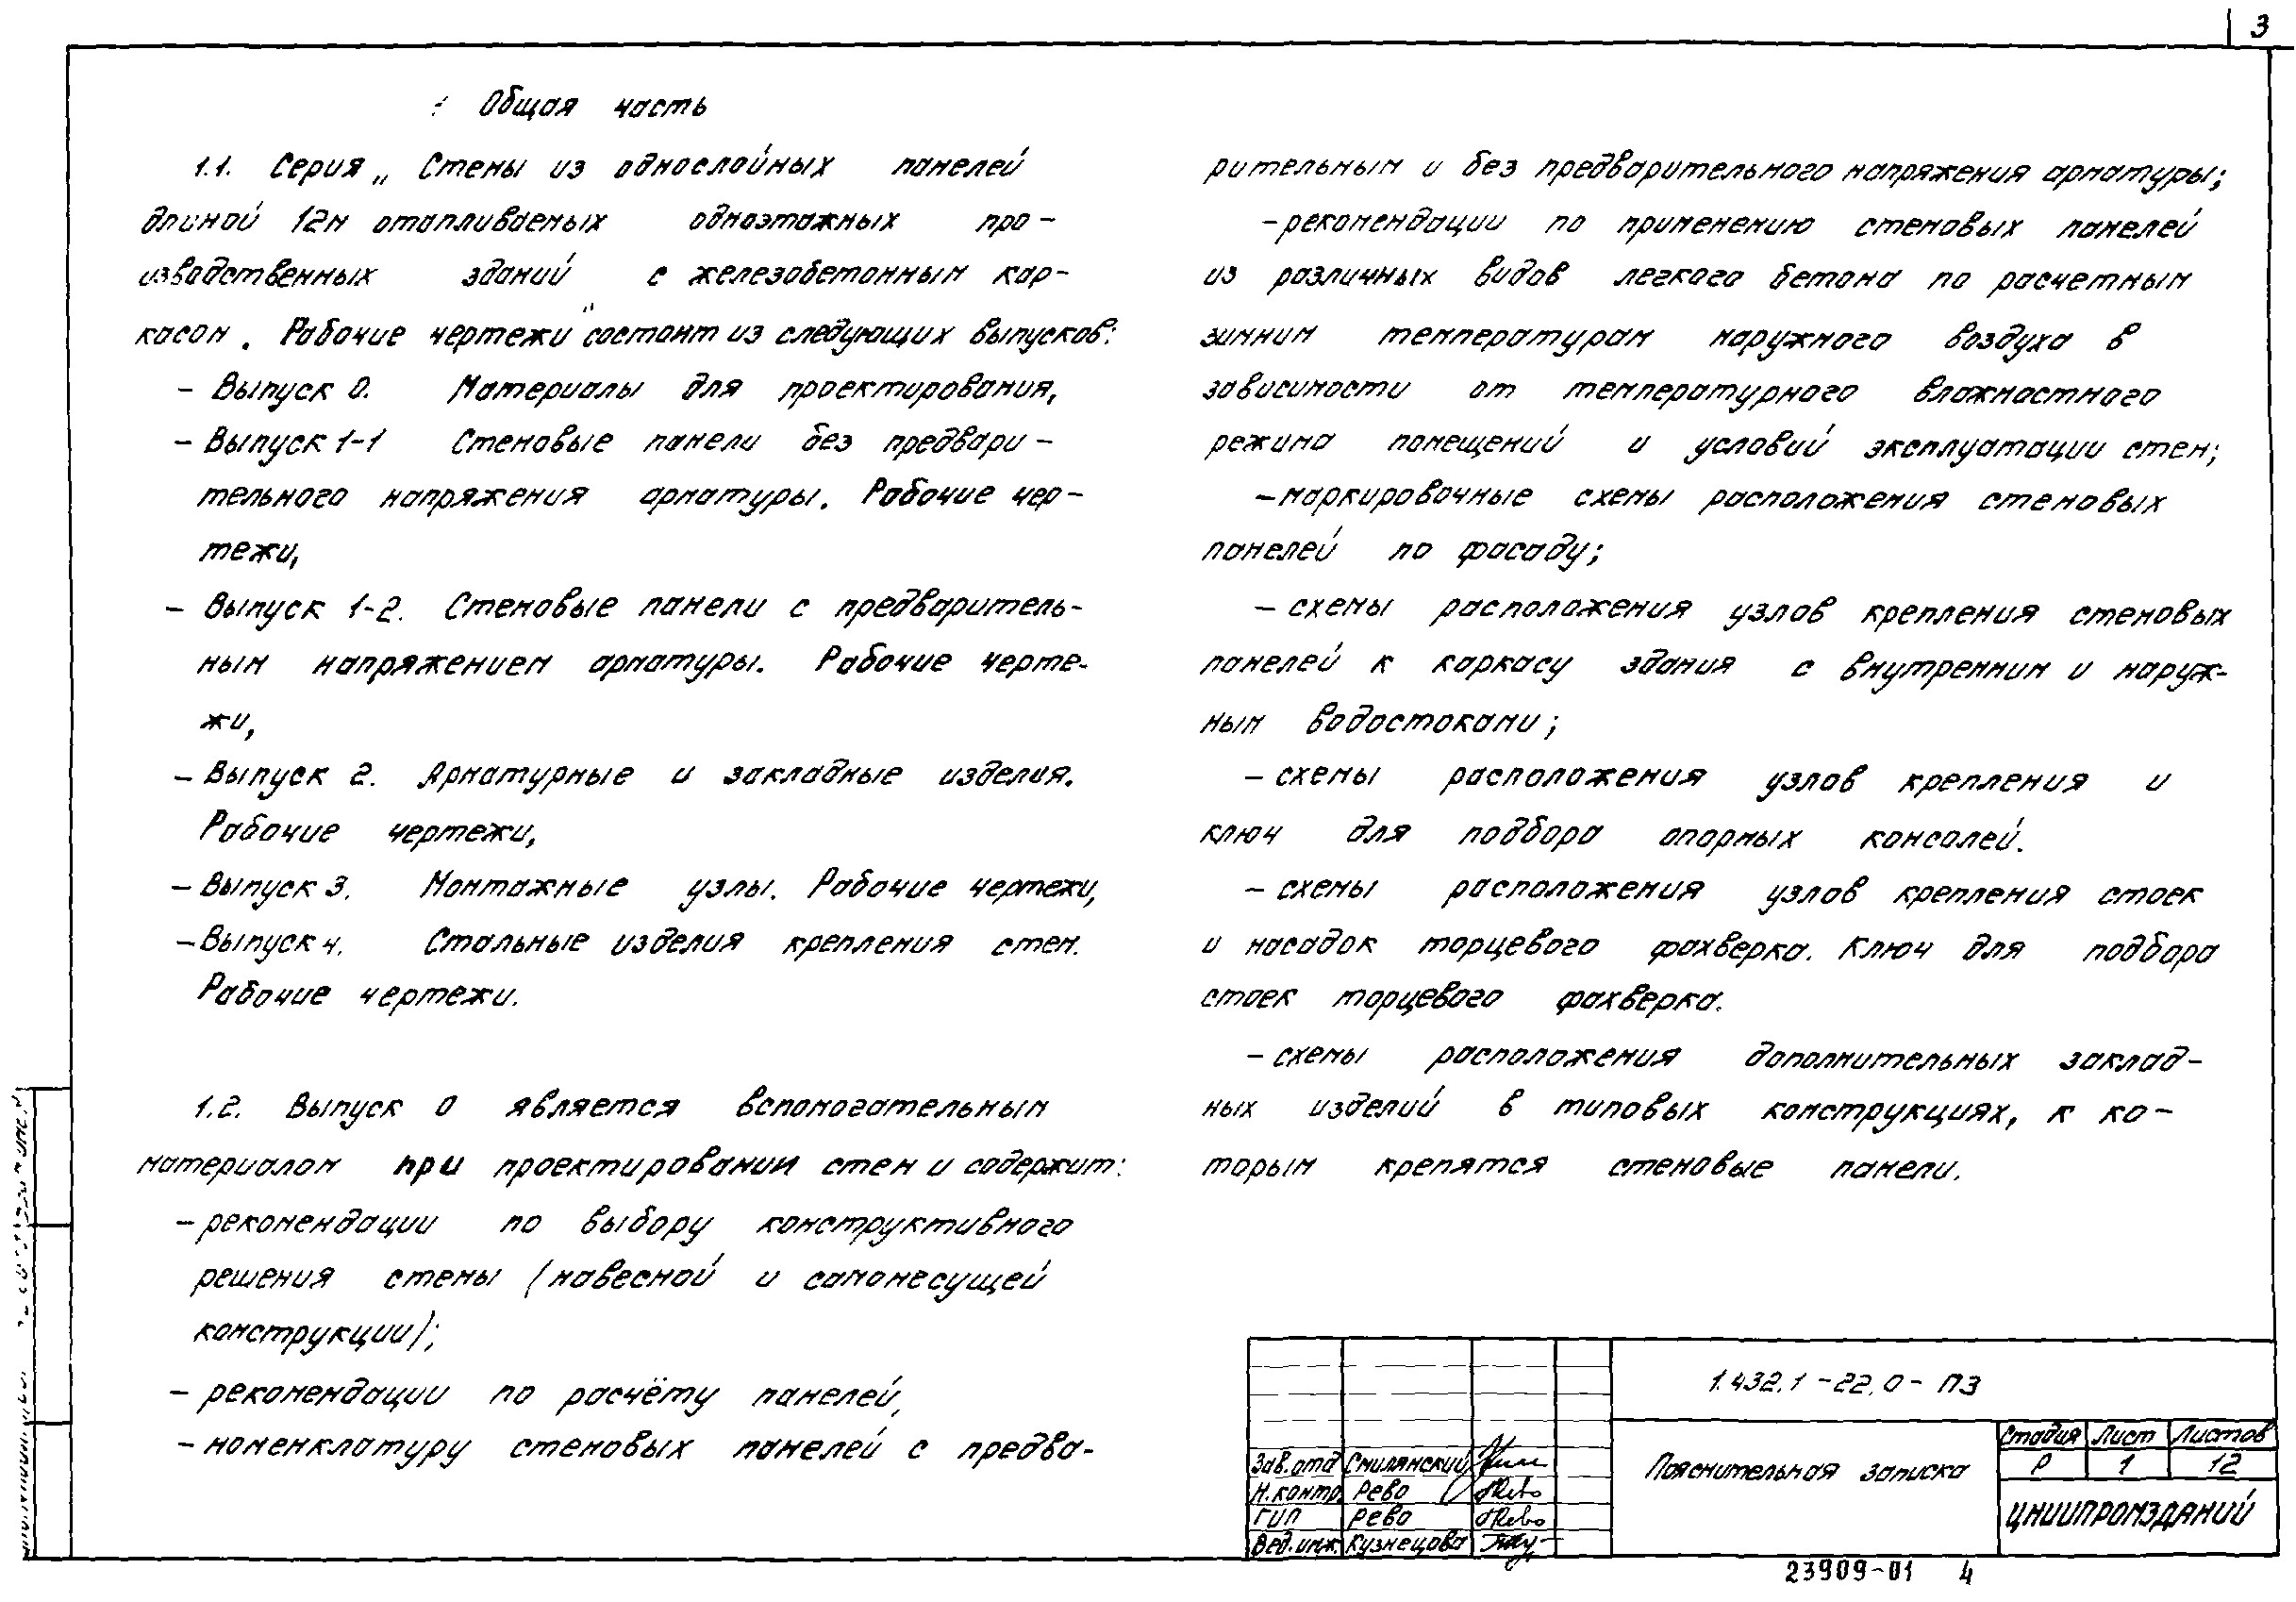 3
Общая часть
1.1. Серия „ Стены из однослойных панелей
длиной 12м отапливаемых одноэтажных про-
изводственных зданий с железобетонным кар-
касом. Рабочие чертежи" состоит из следующих выпусков:
- Выпуск 0. Материалы для проектирования,
- Выпуск 1-1 Стеновые панели без предвари-
тельного напряжения арматуры. Рабочие чер-
тежи,
- Выпуск 1-2. Стеновые панели с предваритель-
ным напряжением арматуры. Рабочие черте-
жи,
- Выпуск 2. Арматурные и закладные изделия.
Рабочие чертежи,
- Выпуск 3. Монтажные узлы. Рабочие чертежи,
- Выпуск 4. Стальные изделия крепления стен.
Рабочие чертежи.
1.2. Выпуск 0 является вспомогательным
материалом при проектировании стен и содержит:
- рекомендации по выбору конструктивного
решения стены (навесной и самонесущей
конструкции);
- рекомендации по расчёту панелей,
- номенклатуру стеновых панелей с предва-
рительным и без предварительного напряжения арматуры;
- рекомендации по применению стеновых панелей
из различных видов легкого бетона по расчетным
зимним температурам наружного воздуха в
зависимости от температурного влажностного
режима помещений и условий эксплуатации стен;
- маркировочные схемы расположения стеновых
панелей по фасаду;
- схемы расположения узлов крепления стеновых
панелей к каркасу здания с внутренним и наруж-
ным водостоками;
- схемы расположения узлов крепления и
ключ для подбора опорных консолей.
- схемы расположения узлов крепления стоек
и насадок торцевого фахверка. Ключ для подбора
стоек торцевого фахверка.
- схемы расположения дополнительных заклад-
ных изделий в типовых конструкциях, к ко-
торым крепятся стеновые панели.
1.432.1-22.0-ПЗ
Зав.отд Смилянский
Н.контр. Рево
ГИП Рево
Вед.инж. Кузнецова
Пояснительная записка
Стадия Лист Листов
Р 1 12
ЦНИИПРОМЗДАНИЙ
23909-01 4